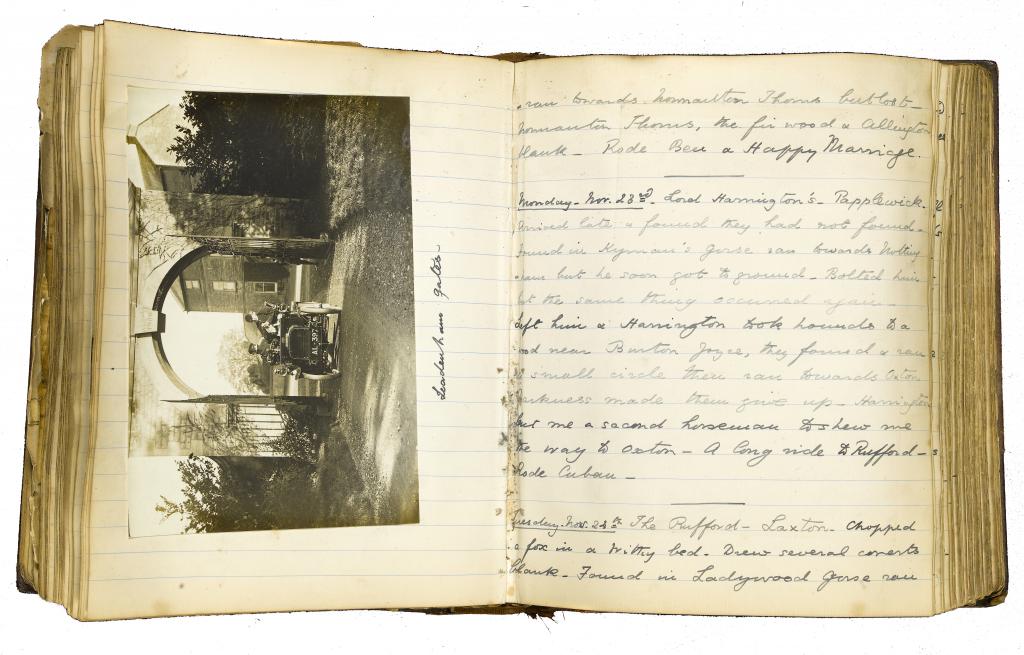 Leadenham gates
AL 397
ran towards Normanton Thorns but lost -
Normanton Thorns, the fir wood & Allington
blank - Rode Ben & Happy Marriage.
Monday - Nov. 23rd. Lord Harrington's - Papplewick.
Arrived late & found they had not found -
Found in Hyman's Gorse ran towards Notting
ham but he soon got to ground - Bolted him
but the same thing occurred again -
Left him & Harrington took hounds to a
wood near Burton Joyce, they found & ran
a small circle then ran towards Oxton
darkness made them give up - Harrington
lent me a second horseman to shew me
the way to Oxton - A long ride to Rufford -
Rode Cuban -
Tuesday - Nov. 24th The Rufford - Laxton - Chopped
a fox in a withy bed - Drew several coverts
blank - Found in Ladywood Gorse ran